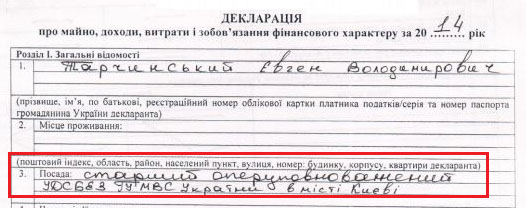 ДЕКЛАРАЦІЯ
про майно, доходи, витрати і зобов’язання фінансового характеру за 2014 рік
Розділ I. Загальні відомості
1. Тарчинський Євген Володимирович
(прізвище, ім’я, по батькові, реєстраційний номер облікової картки платника податків/серія та номер паспорта
громадянина України декларанта)
2. Місце проживання:
(поштовий індекс, область, район, населений пункт, вулиця, номер: будинку, корпусу, квартири декларанта)
3. Посада: старший оперуповноважений
УДСБЕЗ ГУМВС України в місті Києві